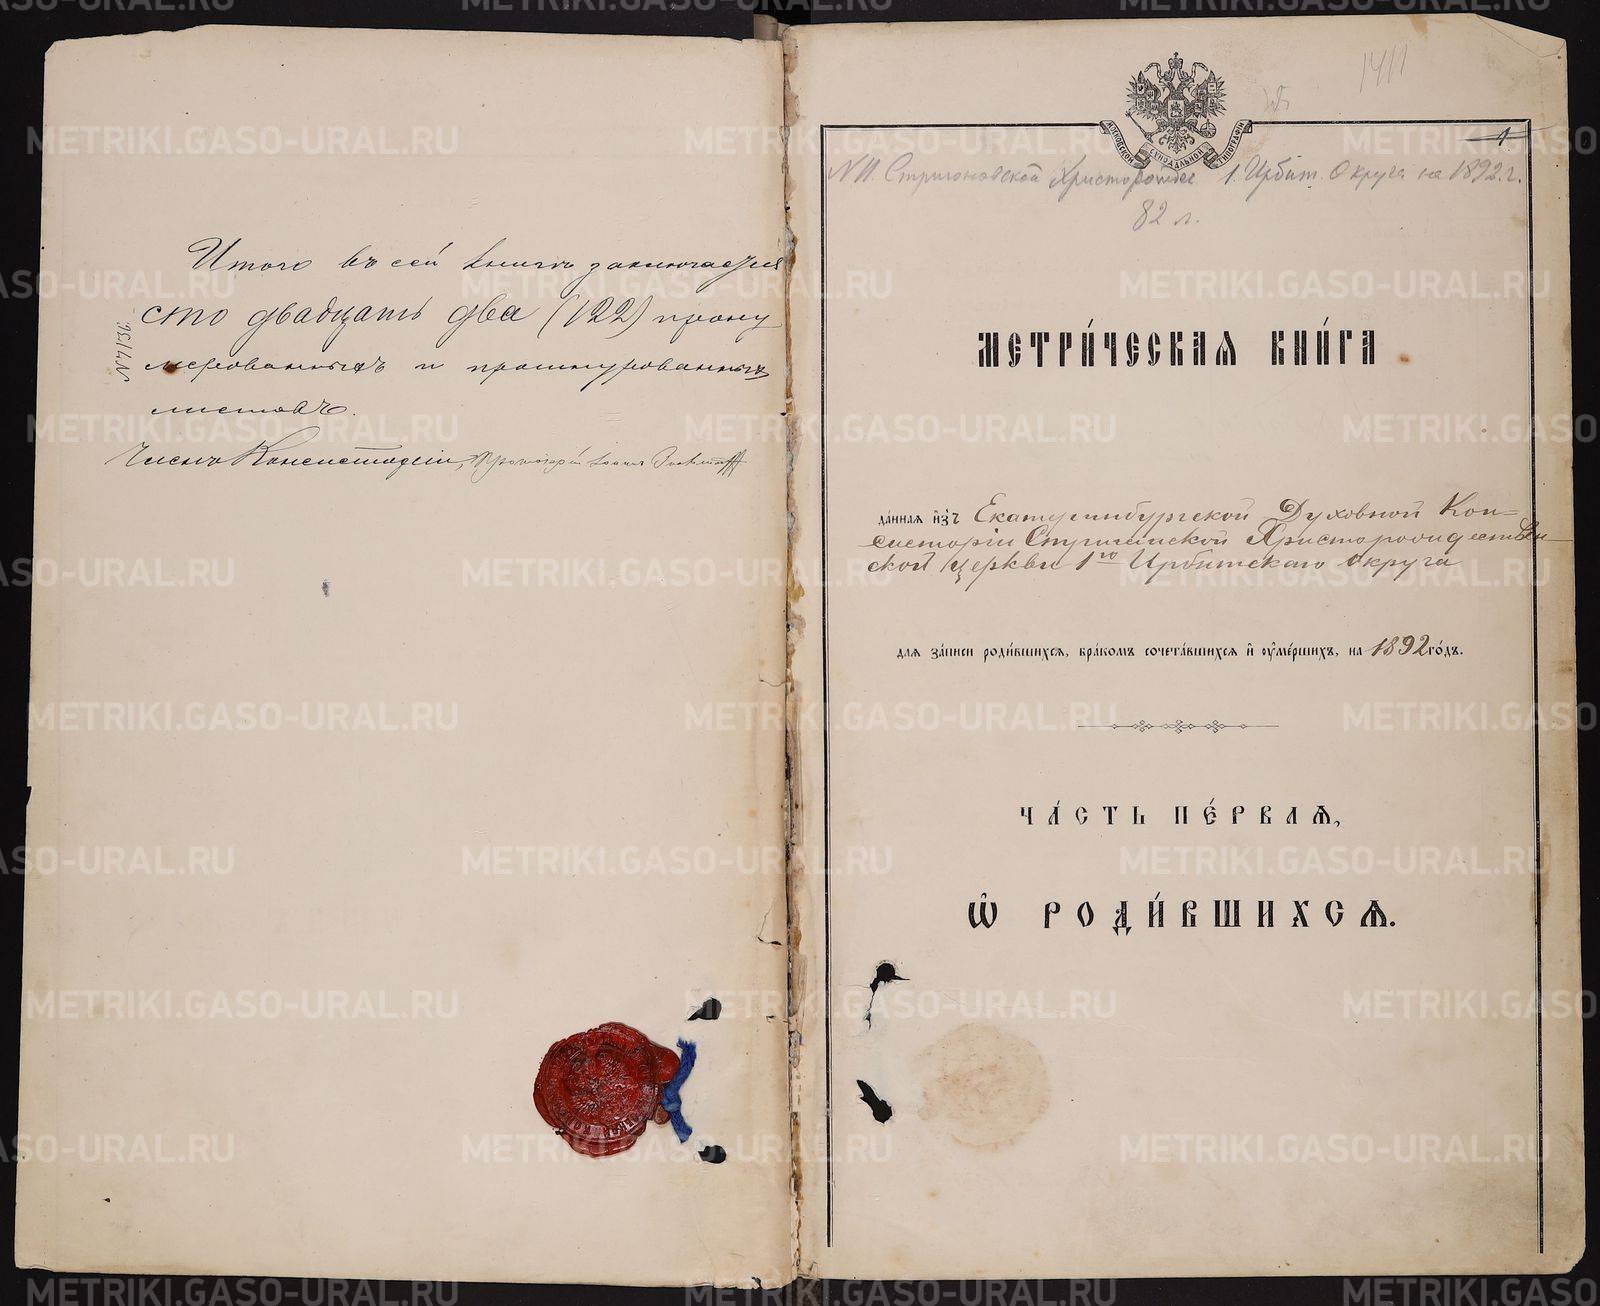 Итого въ сей книгѣ заключается
сто двадцать два (122) прону
мерованныхъ и прошнурованныхъ
листовъ.
Членъ Консисторіи, Протоіерей Іоаннъ
1
МОСКОВСКОЙ СѴНОДАЛЬНОЙ ТИПОГРАФІИ
Христорожд. 1. Ирбит. Округа на 1892. г.
82 л.
МЕТРИ́ЧЕСКАѦ КНИ́ГА
да́ннаѧ и҆зъ Екатеринбургской Духовной Кон=
систоріи Стригинской Христорождествен
ской церкви 1го Ирбитскаго округа
длѧ за́писи роди́вшихсѧ, бра́комъ сочета́вшихсѧ и҆ оуме́ршихъ, на 1892 го́дъ.
ЧА́СТЬ ПЕ́РВАѦ,
Ѽ РОДИ́ВШИХСѦ.
METRIKI.GASO-URAL.RU